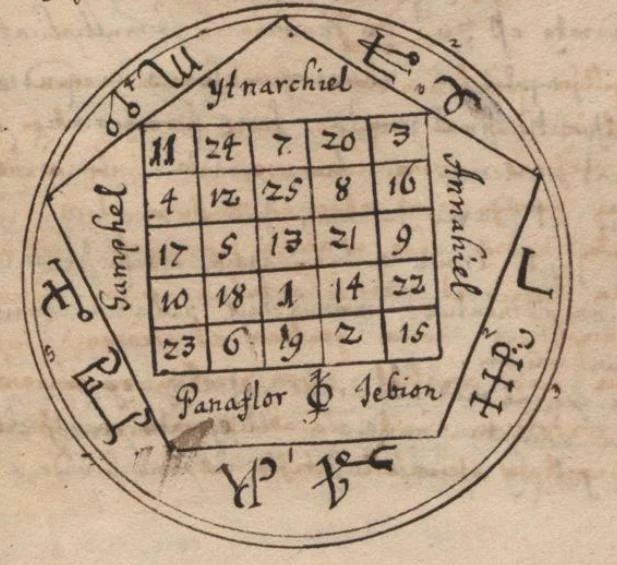 ytnarchiel
11 24 7 20 3
4 12 25 8 16
17 5 13 21 9
10 18 1 14 22
23 6 19 2 15
Gamphel
Annahiel
Panaflor Jebion